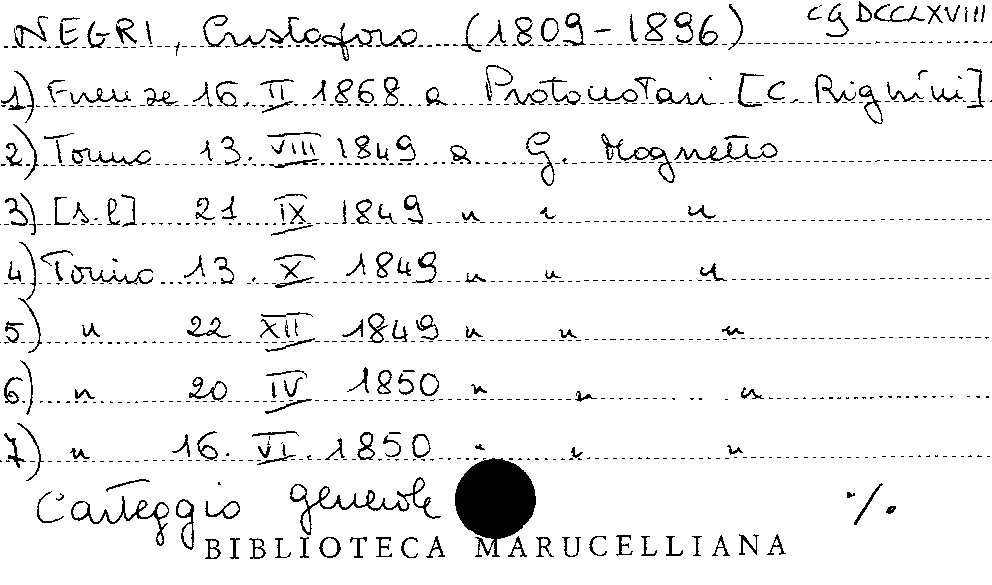 NEGRI, Cristoforo (1809-1896) CG DCCLXVIII
1) Firenze 16. II 1868 a Protonotari [C. Righini]
2) Torino 13. VIII 1849 a G. Mognetto
3) [s.l] 21 IX 1849 " " "
4) Torino 13. X 1849 " " "
5) " 22 XII 1849 " " "
6) " 20 IV 1850 " " "
7) " 16. VI. 1850 " " "
Carteggio generale ·/.
BIBLIOTECA MARUCELLIANA